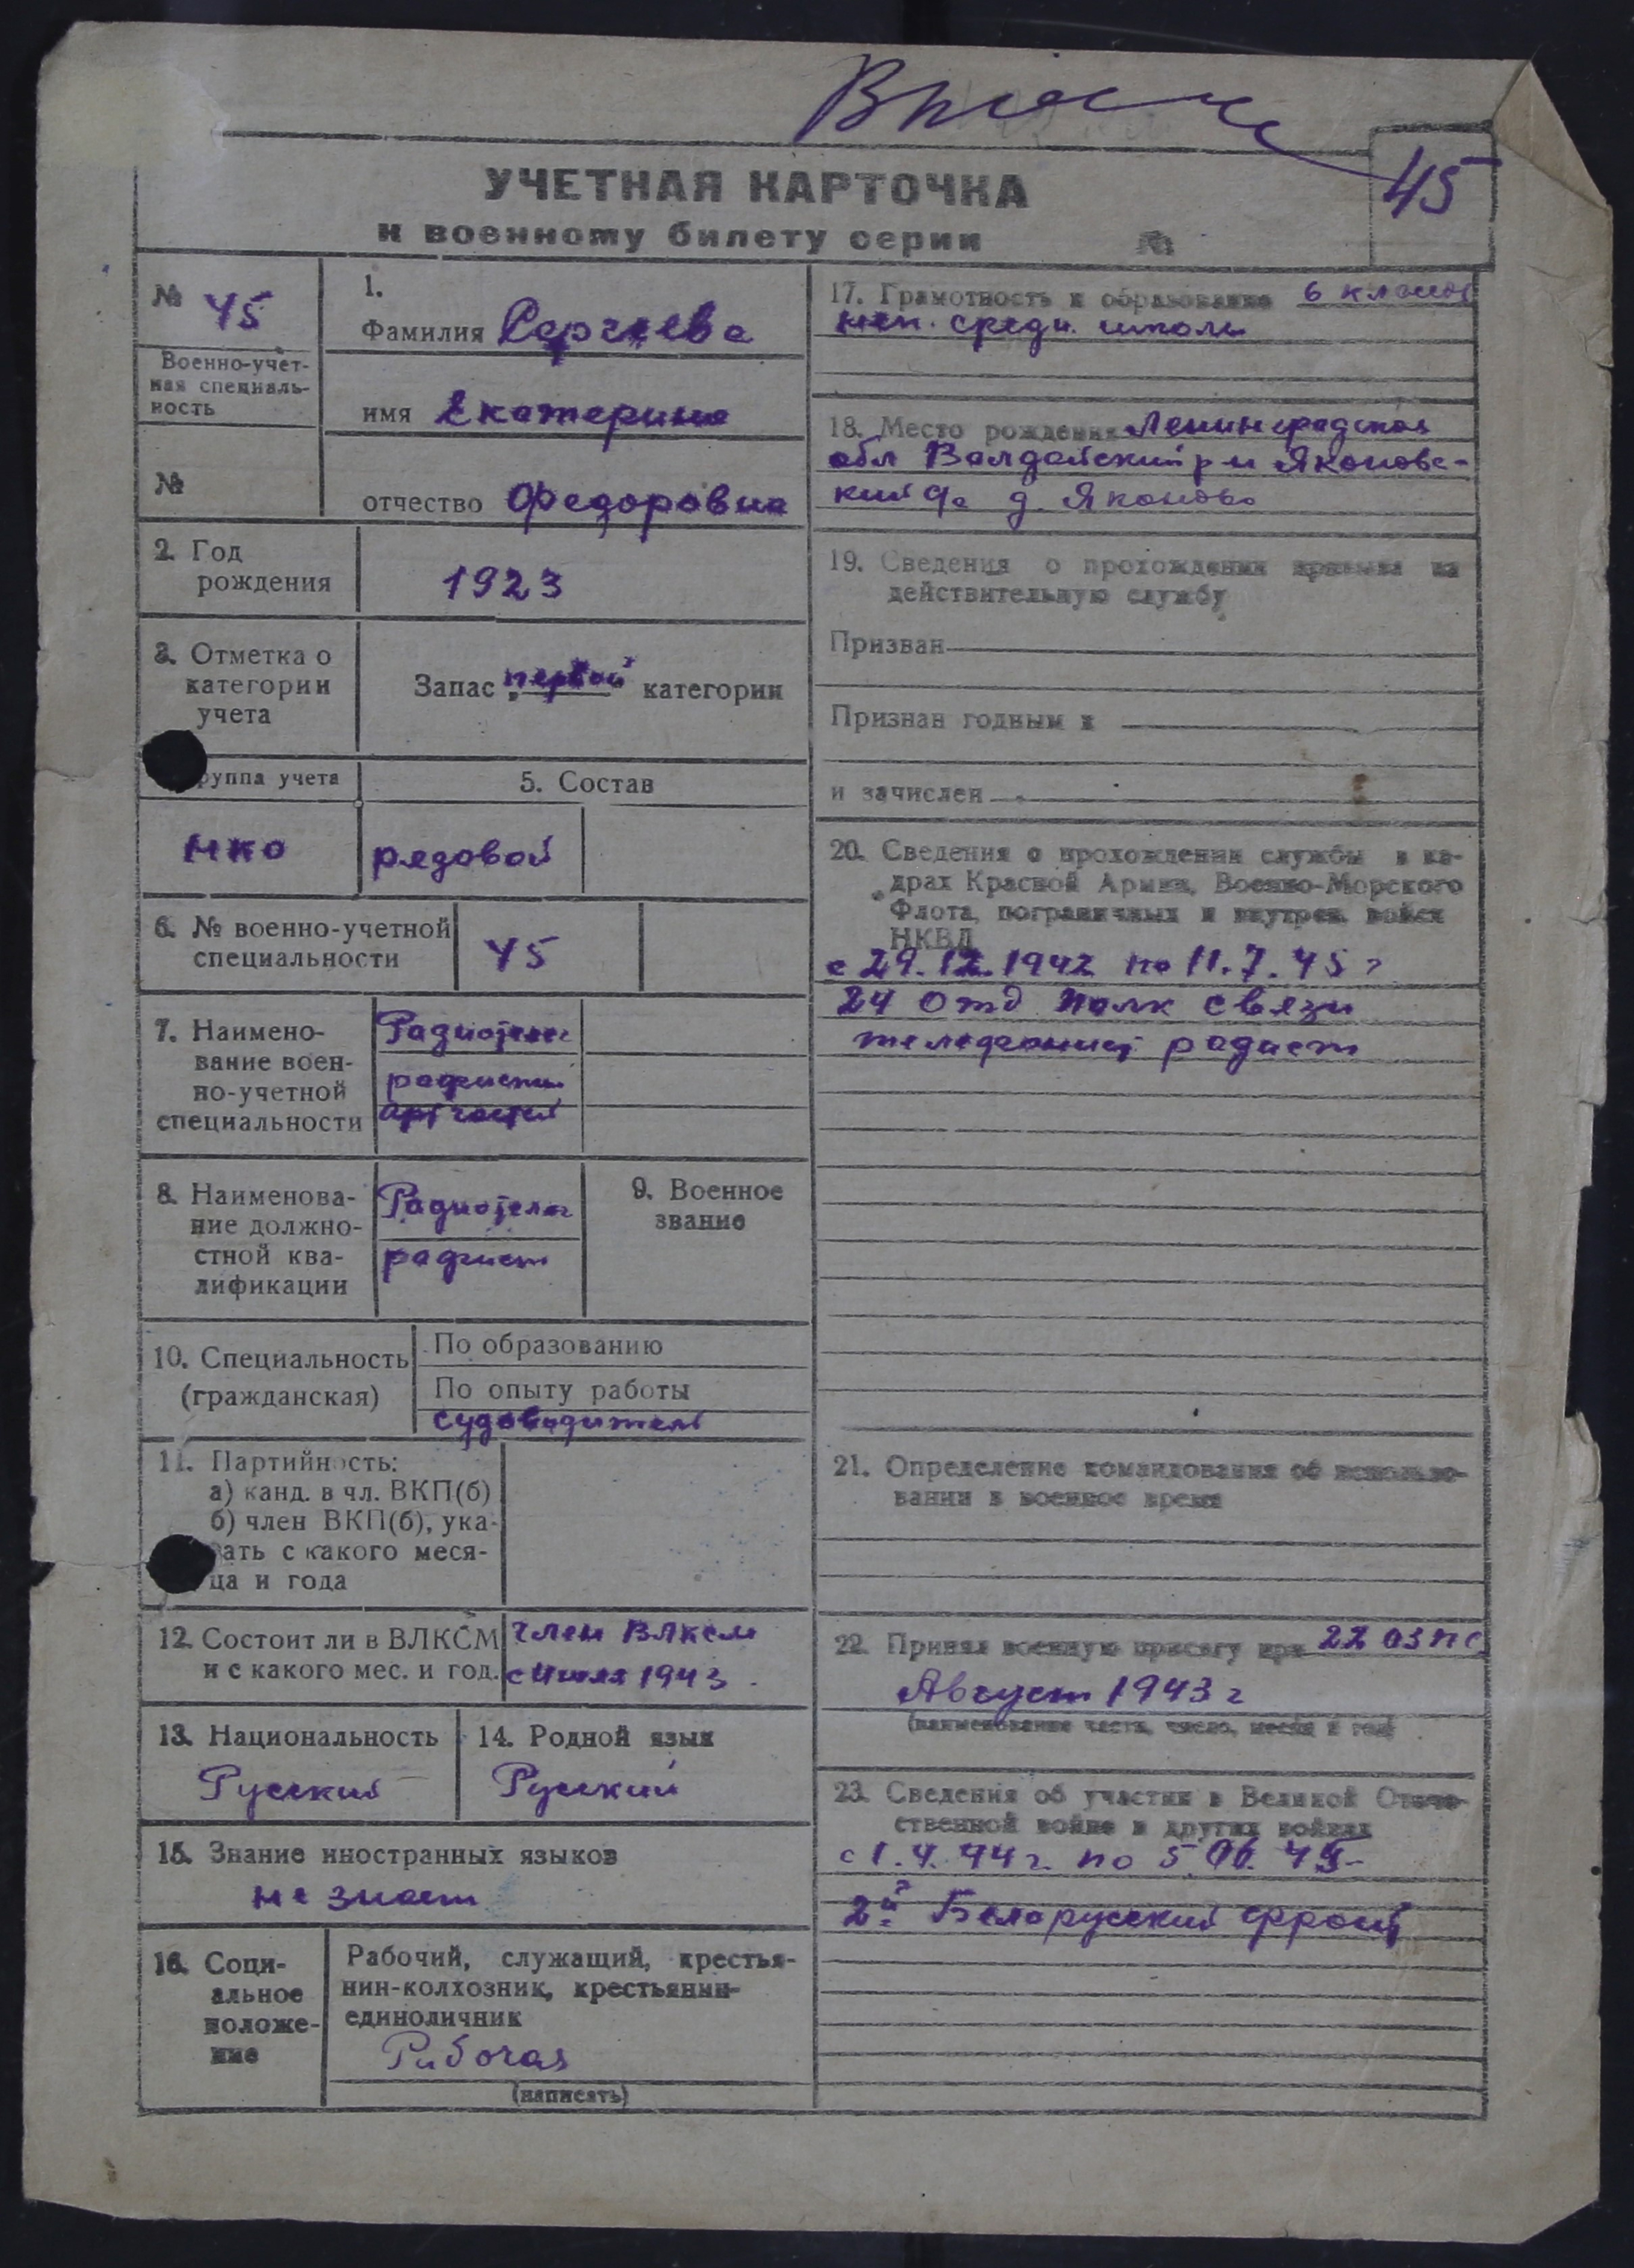 45
УЧЕТНАЯ КАРТОЧКА
к военному билету серии №
№ 45
Военно-учет-
ная специаль-
ность
№
1.
Фамилия Сергеева
имя Екатерина
отчество Федоровна
2. Год
рождения
1923
3. Отметка о
категории
учета
Запас первой категории
руппа учета
5. Состав
НКО
рядовой
6. № военно-учетной
специальности
45
7. Наимено-
вание воен-
но-учетной
специальности
Радиотелег
радисты
арт частей
8. Наименова-
ние должно-
стной ква-
лификации
Радиотелег
радист
9. Военное
звание
10. Специальность
(гражданская)
По образованию
По опыту работы
судоводитель
11. Партийность:
а) канд. в чл. ВКП(б)
б) член ВКП(б), ука-
зать с какого меся-
ца и года
12. Состоит ли в ВЛКСМ
и с какого мес. и год.
член ВЛКСМ
с Июля 1943
13. Национальность
Русский
14. Родной язык
Русский
15. Знание иностранных языков
не знает
16. Соци-
альное
положе-
ние
Рабочий, служащий, крестья-
нин-колхозник, крестьянин-
единоличник
Рабочая
(написать)
17. Грамотность и образование 6 классов
неп. средн. школы
18. Место рождения Ленинградская
обл Валдайский р-н Яконовс-
кий с/с д. Яконово
19. Сведения о прохождении призыва на
действительную службу
Призван
Признан годным к
и зачислен
20. Сведения о прохождении службы в ка-
драх Красной Армии, Военно-Морского
Флота, пограничных и внутрен. войск
НКВД
с 29.12.1942 по 11.7.45 г
24 Отд полк связи
телефонист радист
21. Определение командования об использо-
вании в военное время
22. Принял военную присягу при 22 ОЗПС
Август 1943 г
(наименование части, число, месяц и год)
23. Сведения об участии в Великой Отече-
ственной войне и других войнах
с 1.4.44 г. по 5.06.45
2й Белорусский фронт